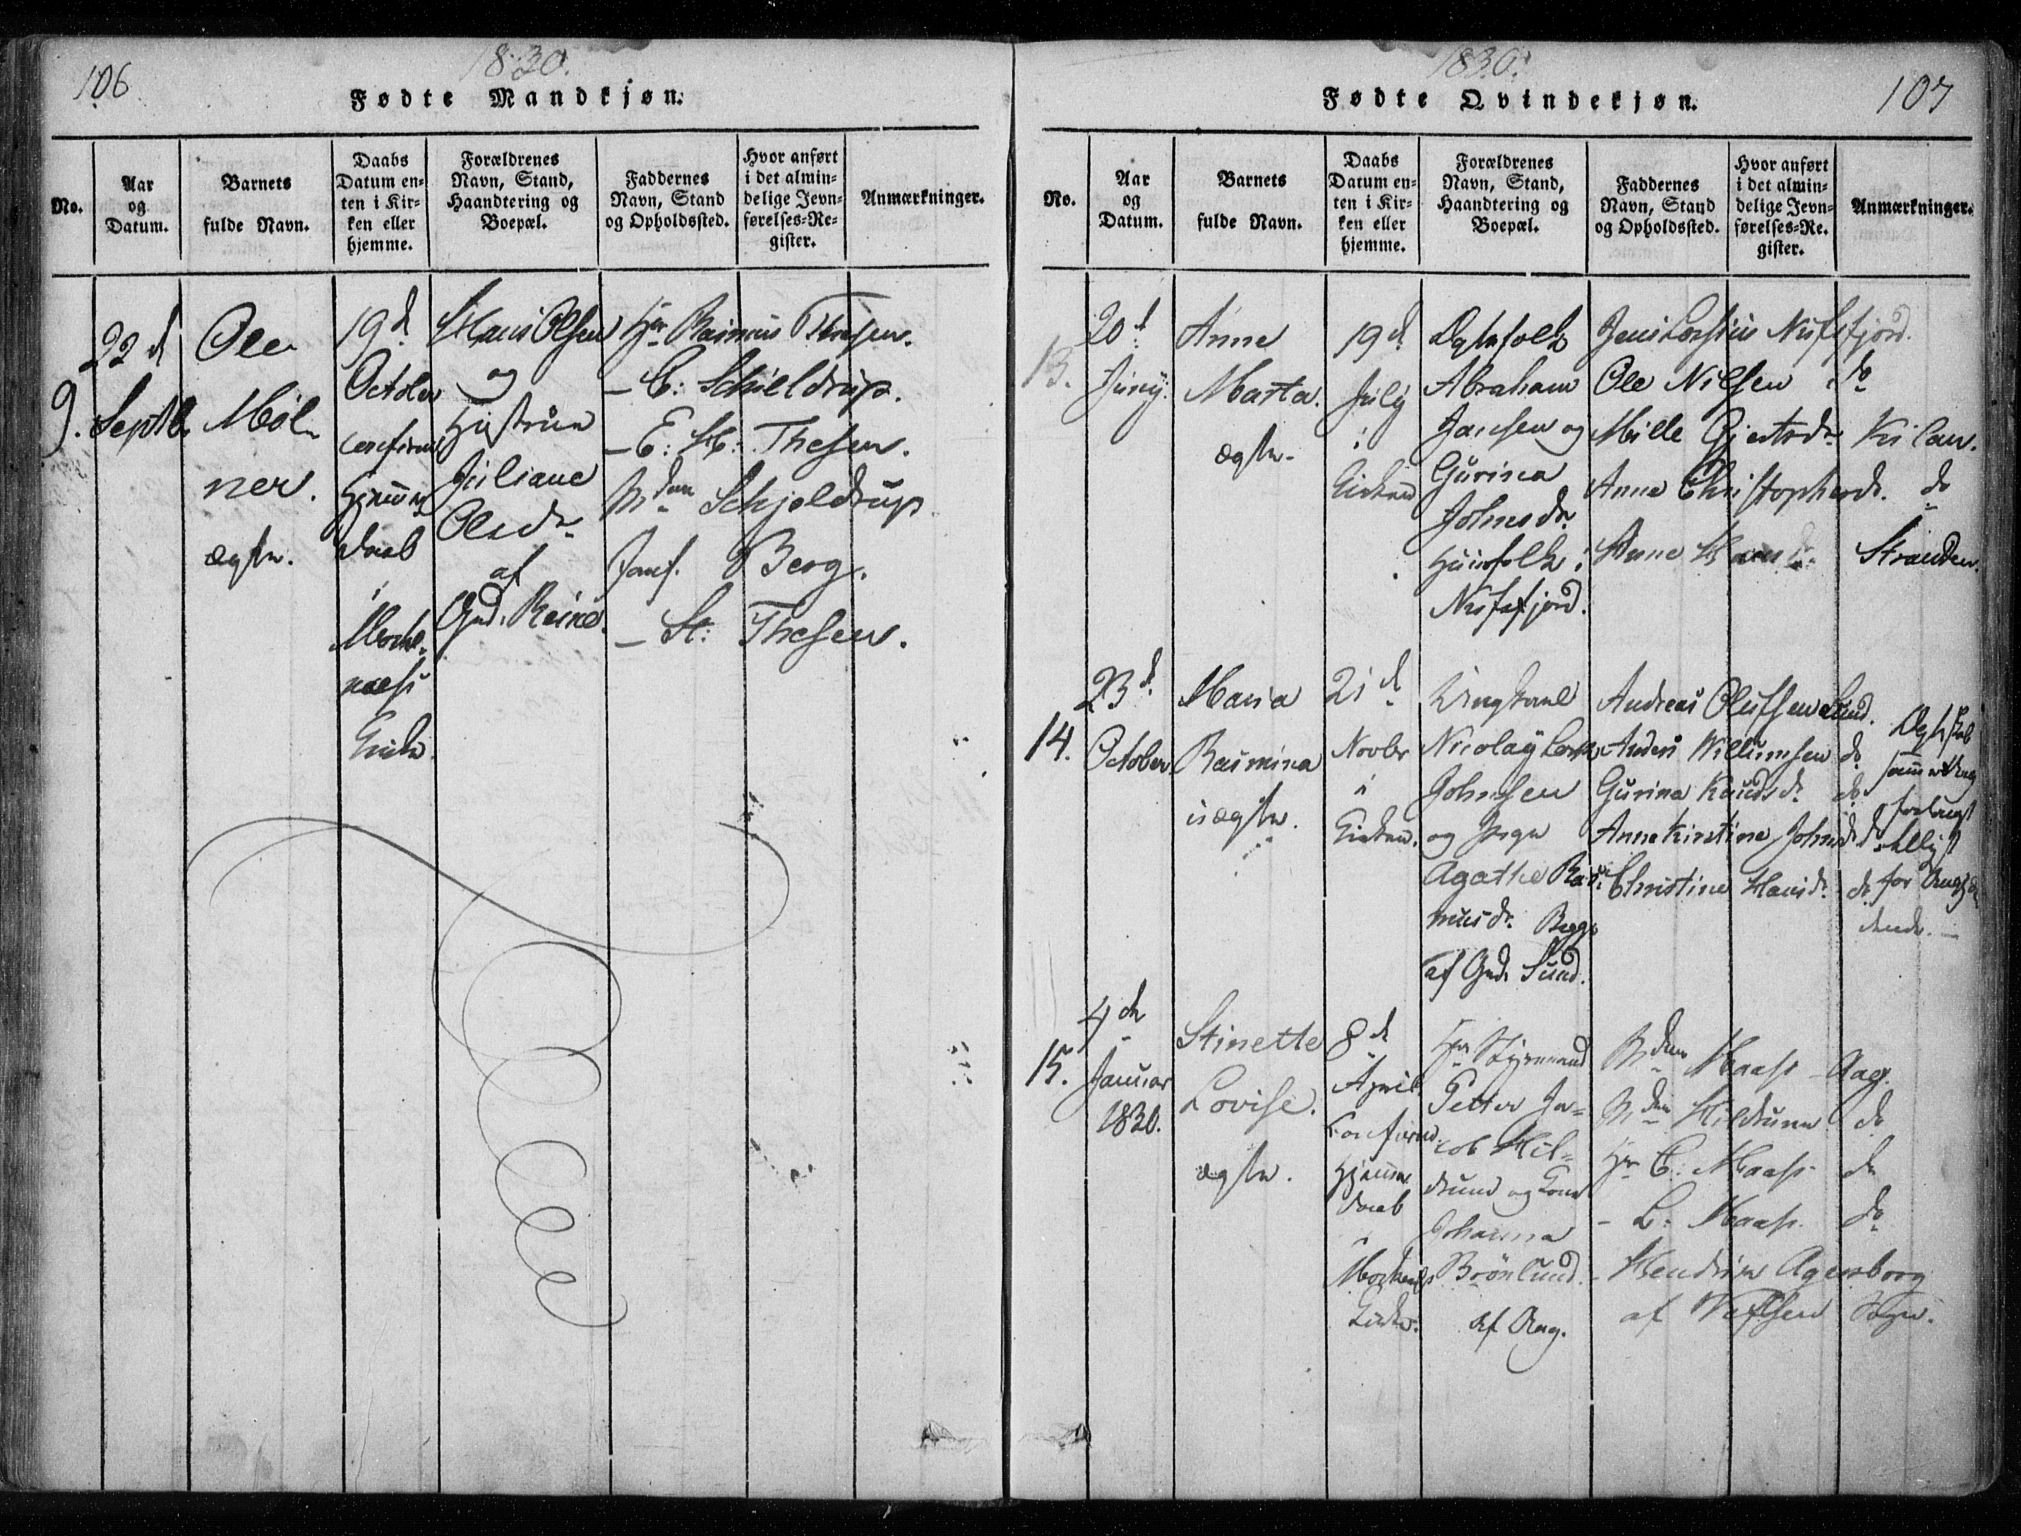 106
1830.
Fødte Mandkjøn.
No.
Aar
og
Datum.
Barnets
fulde Navn.
Daabs
Datum en-
ten i Kir-
ken eller
hjemme.
Forældrenes
Navn, Stand,
Haandtering og
Boepæl.
Faddernes
Navn, Stand
og Opholdssted.
Hvor anført
i det almin-
delige Jevn-
førelses-Re-
gister.
Anmærkninger.
9.
22 d
Septbr
Ole
Møl-
ner.
ægte.
19 d
October
confirm
Hjemme
daab
i
Moske-
næss
Kirke.
Hans Olsen
og
Hustrue
Juliane
Olsdr
af
Grd. Reine.
Hr. Rasmus Thesen.
– C: Schieldrup.
– E: H: Thesen.
Mdm Schjeldrup
Jomf. Berg.
– St: Thesen.
1830.
107
Fødte Qvindekjøn.
No.
Aar
og
Datum.
Barnets
fulde Navn.
Daabs
Datum en-
ten i Kir-
ken eller
hjemme.
Forældrenes
Navn, Stand,
Haandtering og
Boepæl.
Faddernes
Navn, Stand
og Opholdssted.
Hvor anført
i det almin-
delige Jevn-
førelses-Re-
gister.
Anmærkninger.
13.
20 d
Juny
Anne
Marta.
ægte.
19 d
July
i
Kirken
Ægtefolk
Abraham
Jansen og
Gurina
Johnsdr
Huusfolk i
Nusfjord.
Jens Nusfjord.
Ole Nilsen do
Mille Gjertsdr Kilan.
Anne Christophersdr. do
Anne Hansdr Stranden.
14.
23 d.
October
Maria
Rasmina
uægte.
21 d
Novbr
i
Kirken.
Ungkarl
Nicolay
Johnsen
og Pige
Agathe Ras-
musdr. Begge
af Grd. Sund.
Andreas Olufsen Sund.
Anders Willumsen do
Gurina Knudsdr. do
Anne Kirstine Johnsdr do
Christine Hansdr. do
for
15.
4 de
Januar
1830.
Stinette
Lovise.
ægte.
8 d
April
Confirm.
Hjemme
daab
i
Moskenes
Kirke.
Hr Styrmand
Petter Ja-
cob Hil-
drum og Kone
Johanna
Brönlund.
af Aag.
Mdm Maass Aag.
Mdm Hildrum do
Hr C: Maass do
– L: Maass. do
– Hendrik Agersborg
af Wefsen Sogn.